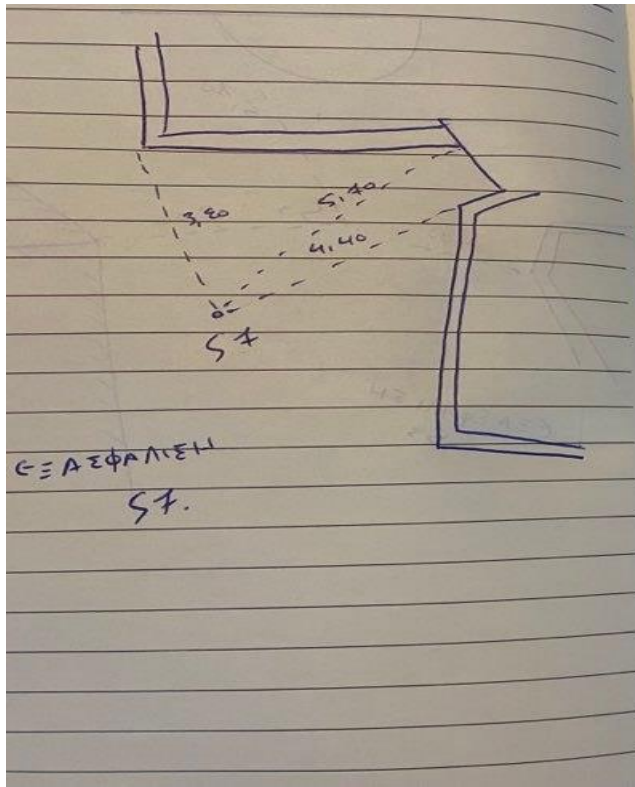 3,20
5,70
4,40
S7
ΕΞΑΣΦΑΛΙΣΗ
S7.